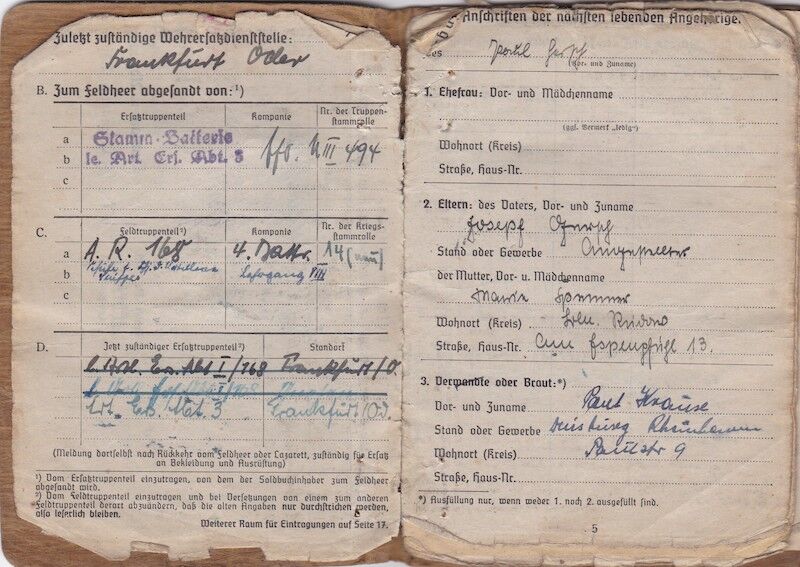 Zuletzt zuständige Wehrersatzdienststelle:
Frankfurt Oder
B. Zum Feldheer abgesandt von:¹)
Ersatztruppenteil
Kompanie
Nr. der Truppen-
stammrolle
a
Stamm-Batterie
b
le. Art. Ers. Abt. 3
494
c
C.
Feldtruppenteil²)
Kompanie
Nr. der Kriegs-
stammrolle
a
A. R. 168
4. Battr.
14 (neu)
b
Lehrgang VIII
c
D.
Jetzt zuständiger Ersatztruppenteil²)
Standort
Abt I/168 Frankfurt/O.
Art. Ers. Abt. 3
Frankfurt/Od.
(Meldung dortselbst nach Rückkehr vom Feldheer oder Lazarett, zuständig für Ersatz
an Bekleidung und Ausrüstung)
¹) Vom Ersatztruppenteil einzutragen, von dem der Soldbuchinhaber zum Feldheer
abgesandt wird.
²) Vom Feldtruppenteil einzutragen und bei Versetzungen von einem zum anderen
Feldtruppenteil derart abzuändern, daß die alten Angaben nur durchstrichen werden,
also leserlich bleiben.
Weiterer Raum für Eintragungen auf Seite 17.
Anschriften der nächsten lebenden Angehörige.
des
(Vor- und Zuname)
1. Ehefrau: Vor- und Mädchenname
(ggf. Vermerk „ledig“)
Wohnort (Kreis)
Straße, Haus-Nr.
2. Eltern: des Vaters, Vor- und Zuname
Josepf
Stand oder Gewerbe Angestellter
der Mutter, Vor- u. Mädchenname
Marie
Wohnort (Kreis) Bln. Rudow
Straße, Haus-Nr. Am Espenpfuhl 13.
3. Verwandte oder Braut:*)
Vor- und Zuname Paul Krause
Stand oder Gewerbe Duisburg Rheinhausen
Wohnort (Kreis) Paulstr 9
Straße, Haus-Nr.
*) Ausfüllung nur, wenn weder 1. noch 2. ausgefüllt sind.
5